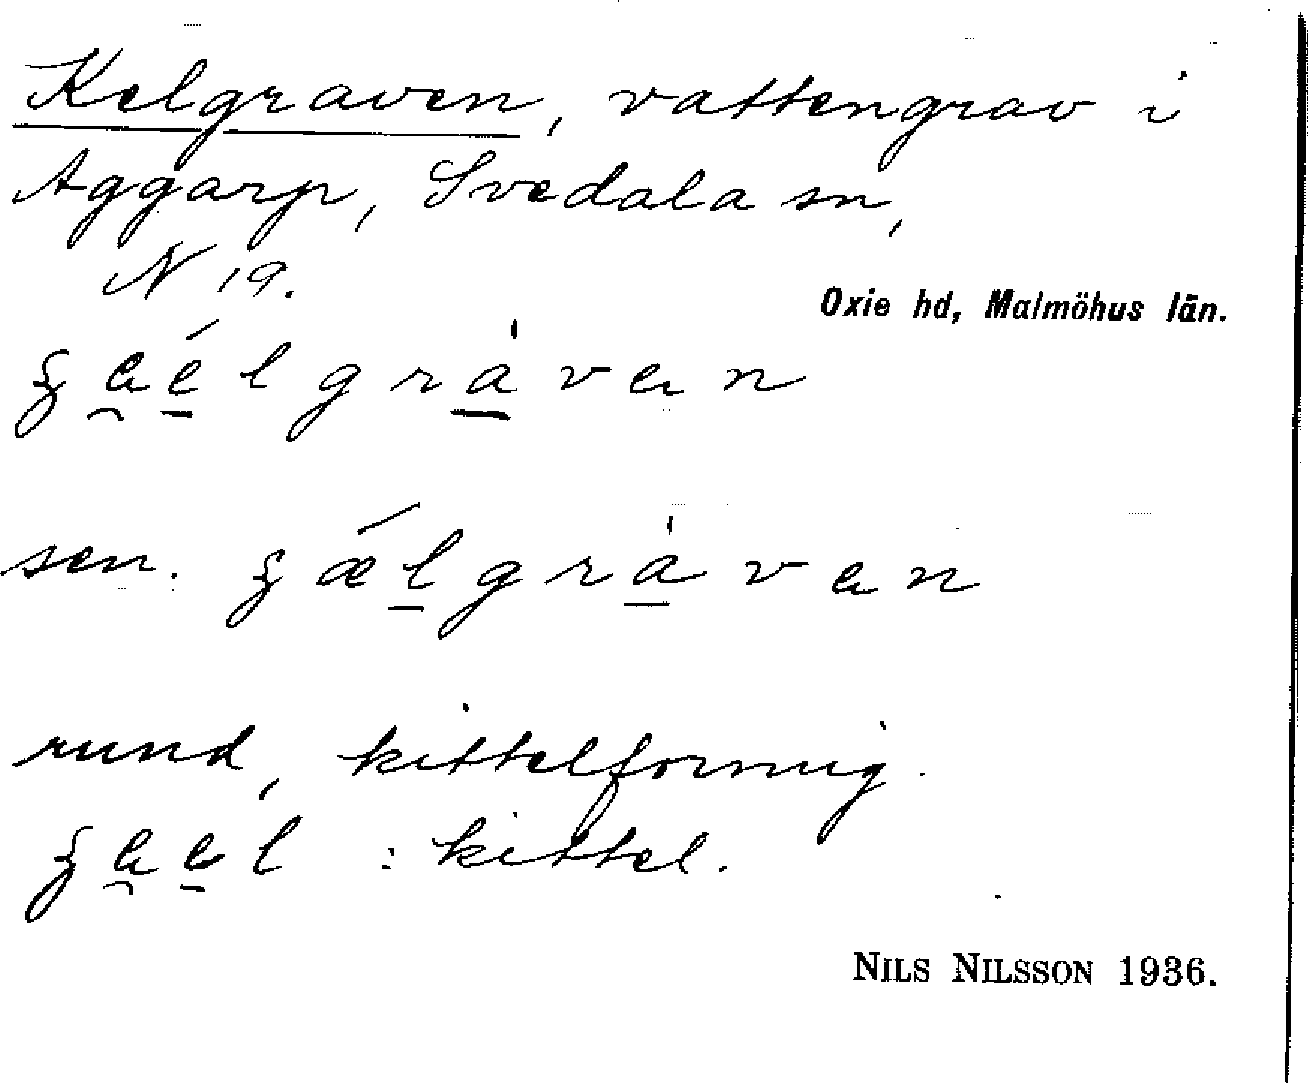 Kelgraven, vattengrav i
Aggarp, Svedala sn,
N 19.
Oxie hd, Malmöhus län.
sen.
rund, kittelformig.
: kittel.
NILS NILSSON 1936.